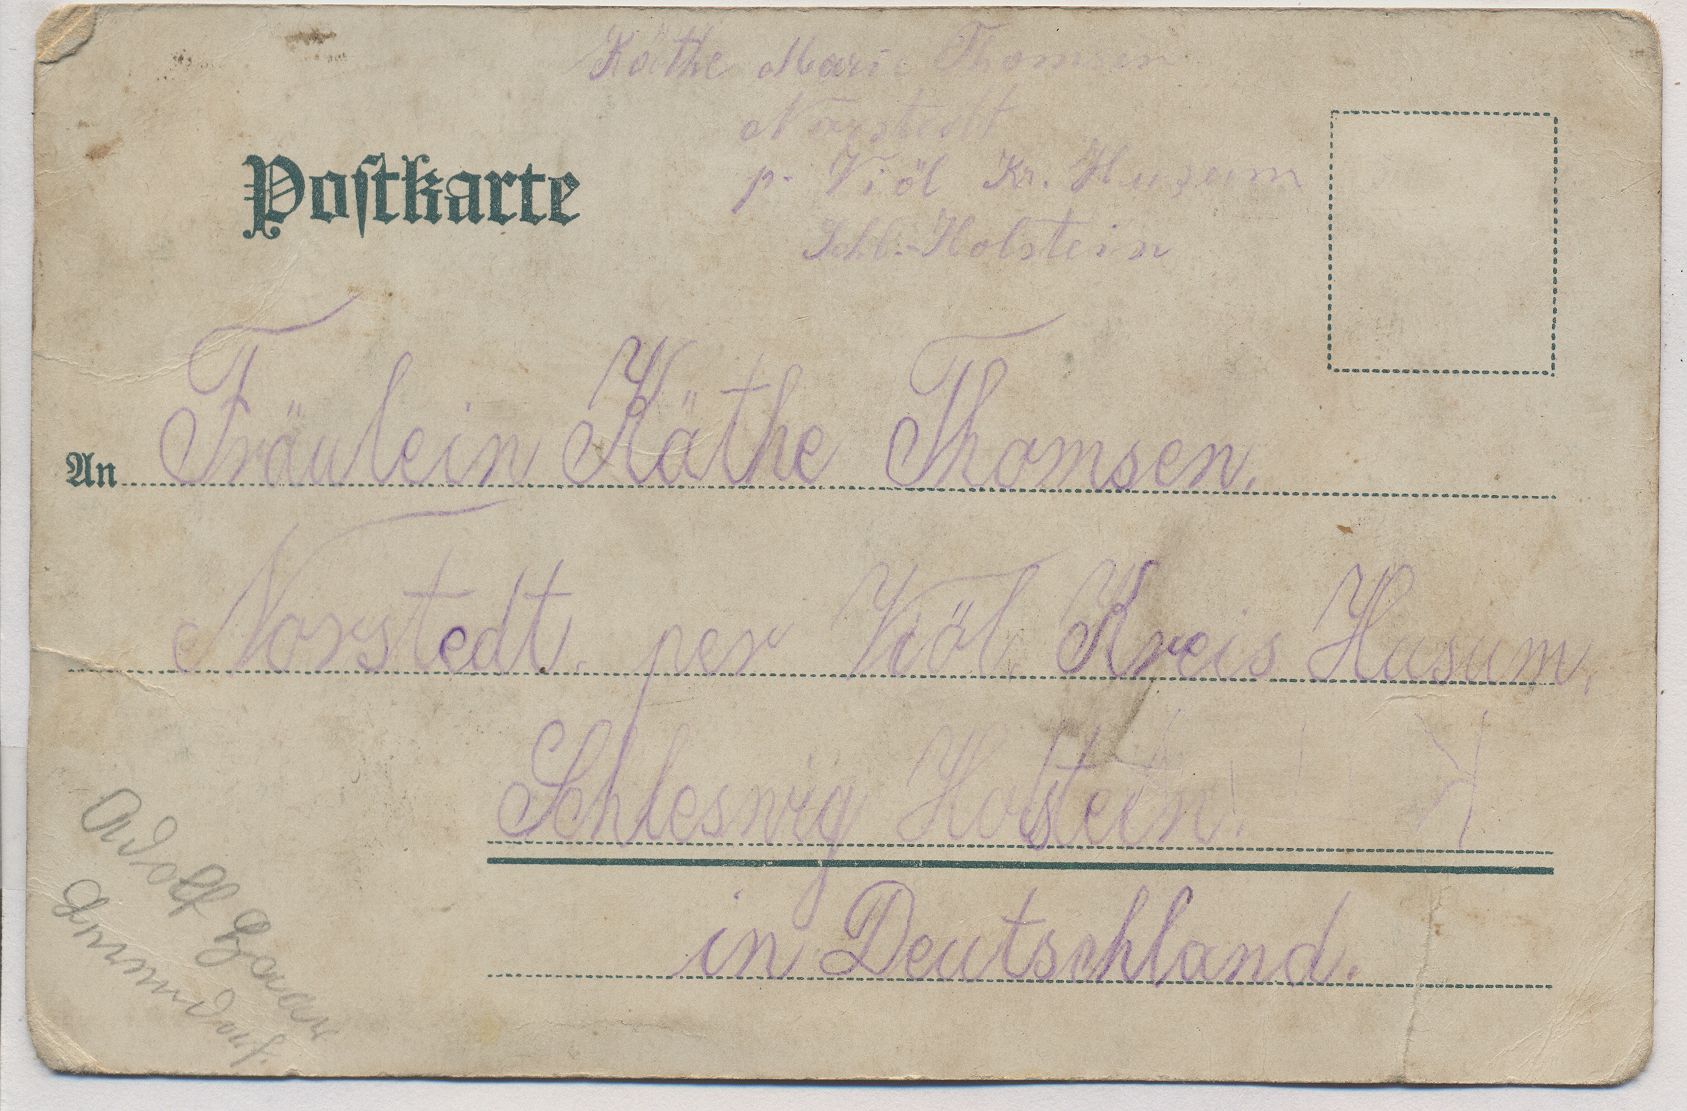 Käthe Marie Thomsen
Norstedt
p. Viöl Kr. Husum
Schl.-Holstein
Postkarte
An Fräulein Käthe Thomsen.
Norstedt. per Viöl Kreis Husum.
Schleswig Holstein.
in Deutschland.
Adolf